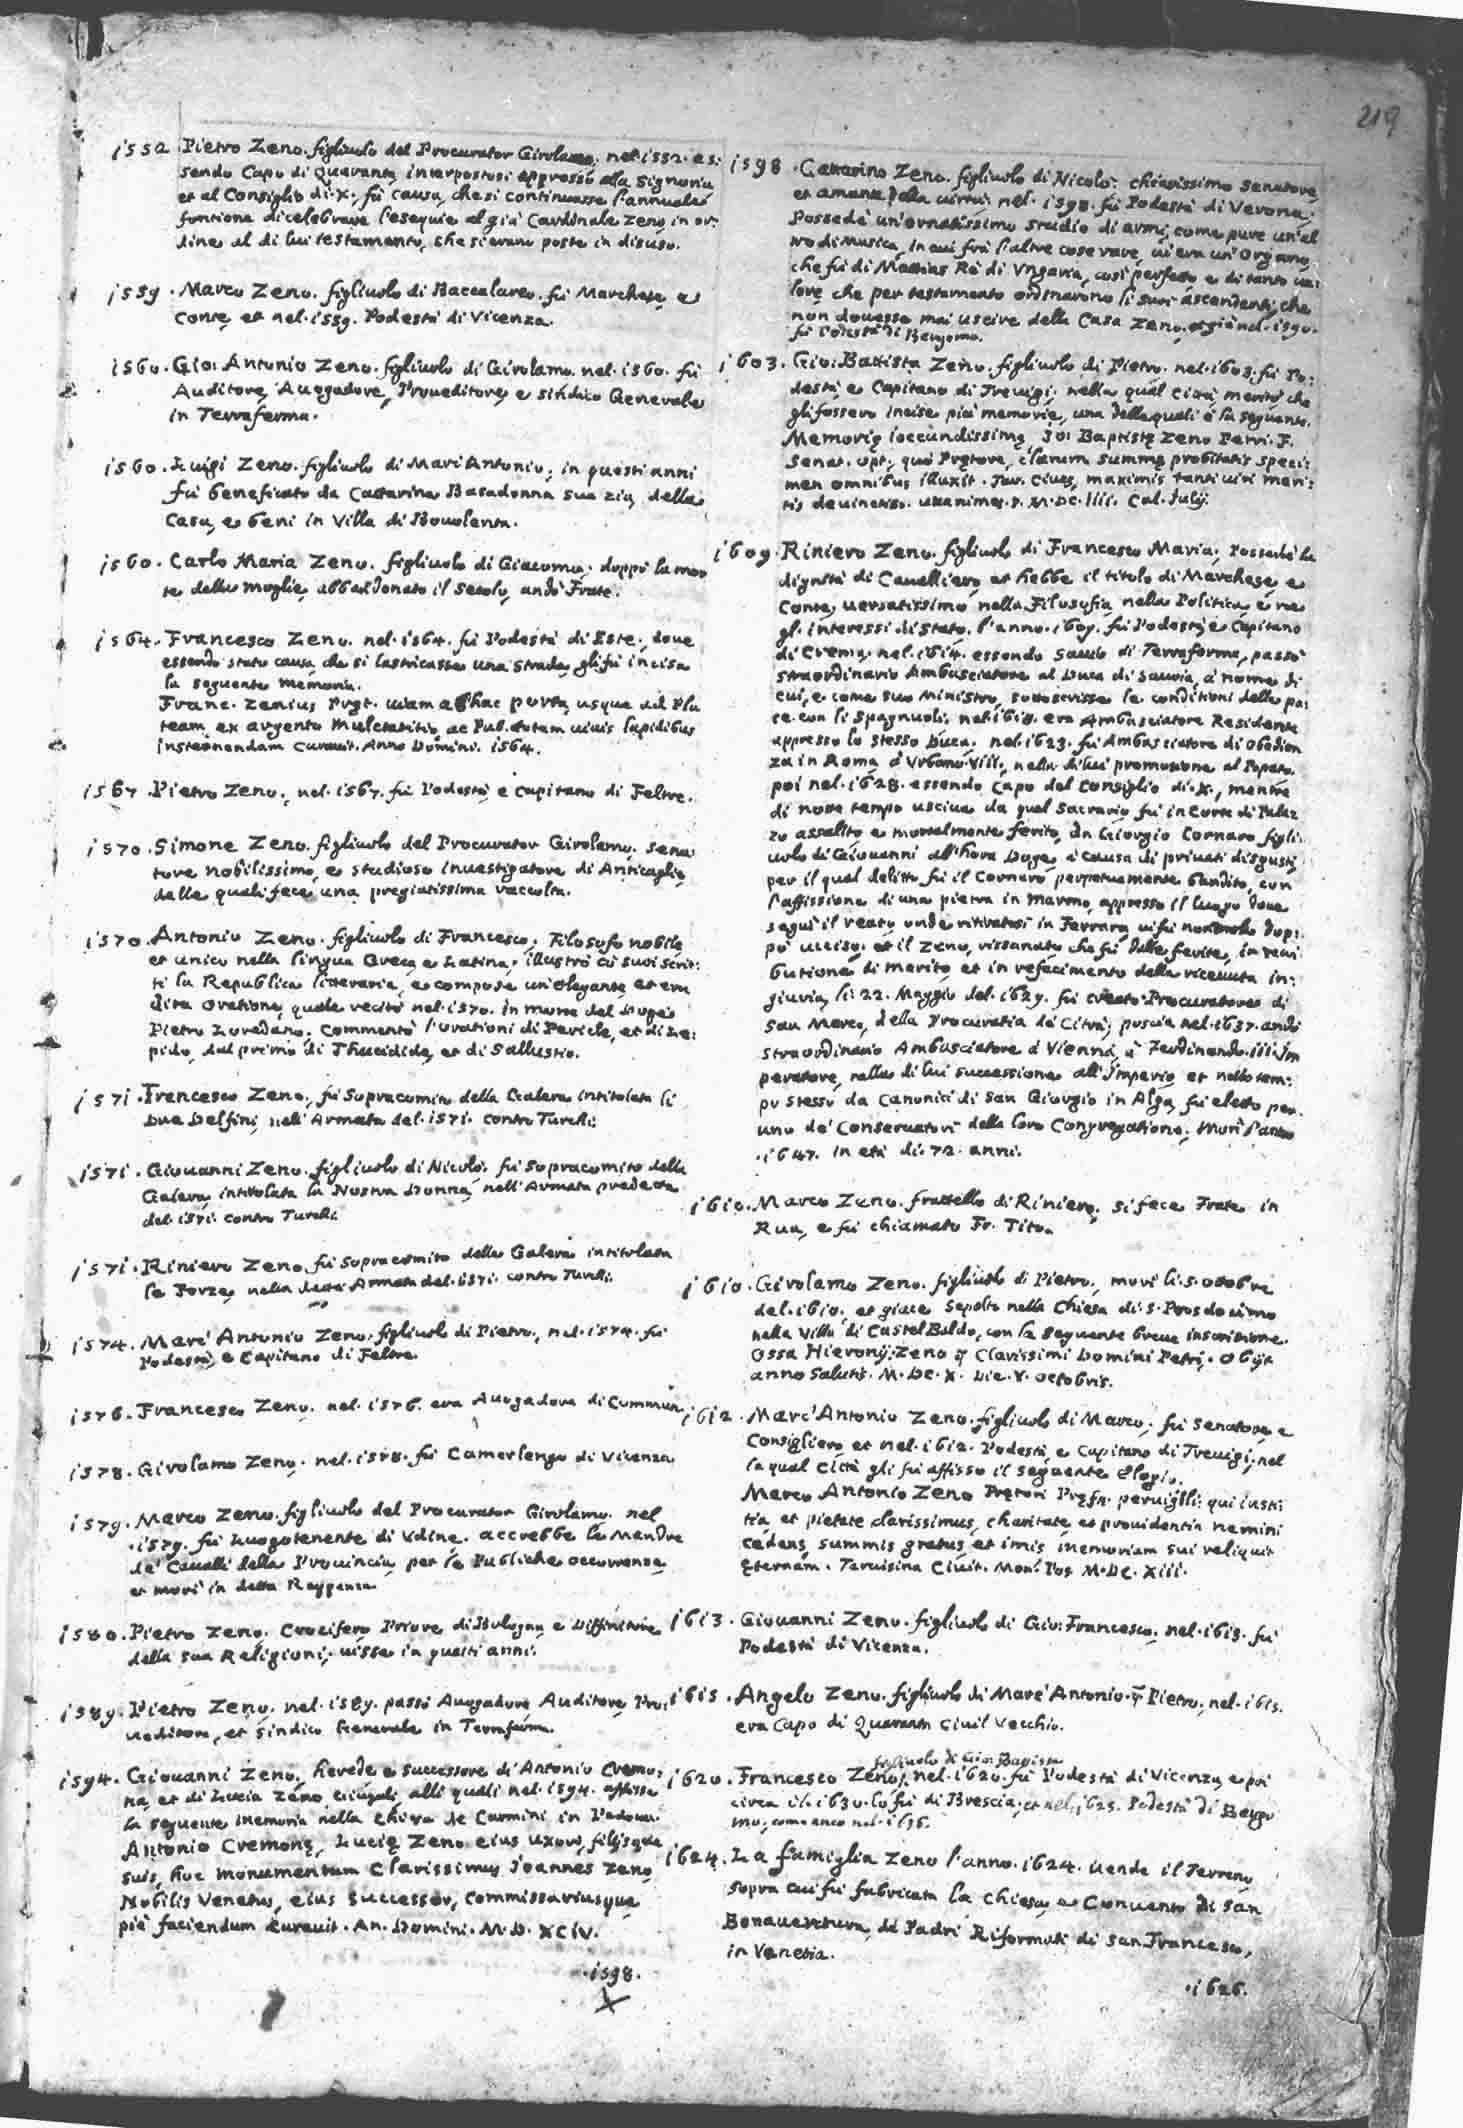 219
1552 Pietro Zeno. figliuolo del Procurator Girolamo. nel. 1552. es:
sendo Capo di Quaranta interpostosi appresso alla Signoria
et al Consiglio di. X. fù causa, che si continuasse l'annuale
fontione di celebrare l'esequie al già Cardinale Zeno, in or:
dine al di lui testamento, che si erano poste in disuso.
1559. Marco Zeno. figliuolo di Baccalareo. fù Marchese, e
Conte, et nel. 1559. Podestà di Vicenza.
1560. Gio: Antonio Zeno. figliuolo di Girolamo. nel. 1560. fù
Auditore, Auogadore, Proueditore, e sindico Generale
in Terraferma.
1560. Luigi Zeno. figliuolo di Marc'Antonio, in questi anni
fù beneficato da Cattarina Basadonna sua zia, della
Casa, e beni in Villa di Bouolenta.
1560. Carlo Maria Zeno. figliuolo di Giacomo. doppò la mor
te della moglie, abbandonato il Secolo, andò Frate.
1564. Francesco Zeno. nel. 1564. fù Podestà di Este, doue
essendo stato causa, che si lastricasse una Strada, gli fù incisa
la seguente memoria.
Franc. Zenius Pręt. uiam ab hac porta, usque ad Pla
team, ex argento Mulctatitio, ac Pub. totam uiuis lapidibus
insternendam curauit. Anno Domini. 1564.
1567. Pietro Zeno., nel. 1567. fù Podestà, e Capitano di Feltre.
1570. Simone Zeno. figliuolo del Procurator Girolamo. sena:
tore nobilissimo, e studioso inuestigatore di Anticaglie,
delle quali fece una pregiatissima raccolta.
1570. Antonio Zeno. figliuolo di Francesco. Filosofo nobile,
et unico nella lingua Greca, e Latina, illustrò cō suoi scrit:
ti la Republica litteraria, e compose un'elegante, et eru
dita oratione, quale recitò nel. 1570. in morte del Doge
Pietro Loredano. Commentò l'orationi di Pericle, et di Le:
pido, dal primo di Thucidide, et di Sallustio.
1571. Francesco Zeno., fù Sopracomito della Galera intitolata li
Due Delfini, nell'Armata del. 1571. contro Turchi.
1571. Giouanni Zeno. figliuolo di Nicolò. fù Sopracomito della
Galera, intitolata la Nostra Donna, nell'Armata predetta
del. 1571. contro Turchi.
1571. Riniero Zeno. fù Sopracomito della Galera intitolata
la Forza, nella detta Armata del. 1571. contro Turchi.
1574. Marc'Antonio Zeno. figliuolo di Pietro., nel. 1574. fù
Podestà, e Capitano di Feltre.
1576. Francesco Zeno. nel. 1576. era Auogadore di Commun.
1578. Girolamo Zeno. nel. 1578. fù Camerlengo di Vicenza.
1579. Marco Zeno. figliuolo del Procurator Girolamo. nel
.1579. fù Luogotenente di Vdine. accrebbe le Mandre
de' Caualli della Prouincia, per le Publiche occorrenze,
et morì in detta Reggenza.
1580. Pietro Zeno. Crucifero Priore di Bologna, e Diffinitore
della sua Religioni, uisse in questi anni.
1589. Pietro Zeno. nel. 1589. passò Auogadore, Auditore, Pro:
ueditore, et Sindico Generale in Terraferma.
1594. Giouanni Zeno, herede, e successore di Antonio Cremo:
na, et di Lucia Zeno alli quali nel. 1594. affisse
la seguente memoria nella Chiesa de Carmini in Padoua.
Antonio Cremonę, Lucię Zeno eius uxori, filijsque
suis, hoc monumentum Clarissimus Joannes Zeno,
Nobilis Venetus, eius successor, commissariusque
piè faciendum curauit. An. Domini. M. D. XCIV.
.1598.
1598. Cattarino Zeno. figliuolo di Nicolò. chiarissimo Senatore,
et amante della uirtù. nel. 1598. fù Podestà di Verona.
Possedè un'ornatissimo studio di armi, come pure un'al
tro di Musica, in cui frà l'altre cose rare, ui era un'Organo,
che fù di Mattias Rè di Vngaria, così perfetto, e di tanto ua:
lore, che per testamento ordinarono li suoi ascendenti, che
non douesse mai uscire della Casa Zeno. et già nel. 1590.
fù Podestà di Bergomo.
1603. Gio: Battista Zeno. figliuolo di Pietro. nel. 1603. fù Po:
destà, e Capitano di Treuigi, nella qual Città, meritò che
gli fossero incise più memorie, una delle quali è la seguente.
Memorię ioccundissimę, Jo: Baptistę Zeno Petri. F.
Senat. Opt., quo Prętore, clarum summę probitatis speci:
men omnibus illuxit. Tar. Ciues, maximis tanti uiri meri:
tis deuinctiss. unanimes. P. M. DC. IIII. Cal. Julij.
1609. Riniero Zeno. figliuolo di Francesco Maria, Possedè la
dignità di Caualliero, et hebbe il titolo di Marchese, e
Conte, uersatissimo nella Filosofia, nella Politica, e ne
gl'interessi di Stato. l'anno. 1609. fù Podestà, e Capitano
di Crema, nel. 1614. essendo Sauio di Terraferma, passò
straordinario Ambasciatore al Duca di Sauoia, à nome di
cui, e come suo ministro, sottoscrisse le conditioni della pa:
ce con li Spagnuoli. nel. 1618. era Ambasciatore Residente
appresso lo stesso Duca. nel. 1623. fù Ambasciatore di obedien
za in Roma, à Vrbano VIII., nella di lui promotione al Papato.
poi nel. 1628. essendo Capo del Consiglio di. X., mentre
di notte tempo usciua da quel Sacrario, fù in Corte di Palaz
zo assalito, e mortalmente ferito, da Giorgio Cornaro, figli:
uolo di Giouanni all'hora Doge, à causa di priuati disgusti,
per il qual delitto fù il Cornaro perpetuamente bandito, con
l'affissione di una pietra in marmo, appresso il luogo doue
seguì il reato, onde ritiratosi in Ferrara, ui fù non molto dop:
pò ucciso, et il Zeno, rissanato che fù delle ferite, in retri
butione di merito, et in refacimento della riceuuta in:
giuria, li. 22. Maggio del. 1629. fù creato Procuratore di
San Marco, della Procuratia de Citrà; poscia nel. 1637. andò
straordinario Ambasciatore à Vienna, à Ferdinando. III. Im
peratore, nella di lui successione all'Imperio, et nello tem:
po stesso da Canonici di San Giorgio in Alga, fù eletto per
uno de' Conseruatori della loro Congregatione. Morì l'anno
.1647. in età di. 72. anni.
1610. Marco Zeno. frattello di Riniero, si fece Frate in
Rua, e fù chiamato Fr. Tito.
1610. Girolamo Zeno. figliuolo di Pietro., morì li. 5. ottobre
del. 1610. et giace sepolto nella Chiesa di. S. Prosdocimo
nella Villa di Castel Baldo, con la seguente breue inscrittione.
Ossa Hieronij: Zeno Clarissimi Domini Petri. Obijt
anno Salutis. M. DC. X. Die. V. Octobris.
1612. Marc'Antonio Zeno. figliuolo di Marco. fù Senatore, e
Consigliero, et nel. 1612. Podestà, e Capitano di Treuigi, nel
la qual Città gli fù affisso il seguente Elogio.
Marco Antonio Zeno Prętori Pręf. peruigili, qui iusti
tia, et pietate clarissimus, charitate, et prouidentia nemini
cedens, summis gratus, et imis, memoriam sui reliquit
ęternam. Taruisina Ciuit. Mon. Pos. M. DC. XIII.
1613. Giouanni Zeno. figliuolo di Gio: Francesco, nel. 1613. fù
Podestà di Vicenza.
1615. Angelo Zeno. figliuolo di Marc'Antonio. Pietro, nel. 1615.
era Capo di Quaranta Ciuil Vecchio.
figliuolo di Gio: Battista
1620. Francesco Zeno, nel. 1620. fù Podestà di Vicenza, e poi
circa il. 1630. lo fù di Brescia, et nel. 1625. Podestà di Bergo
mo, come anco nel. 1636.
1624. La famiglia Zeno l'anno. 1624. uende il Terreno,
sopra cui fù fabricata la Chiesa, e Conuento di San
Bonauentura, de Padri Riformati di San Francesco,
in Venetia.
.1626.